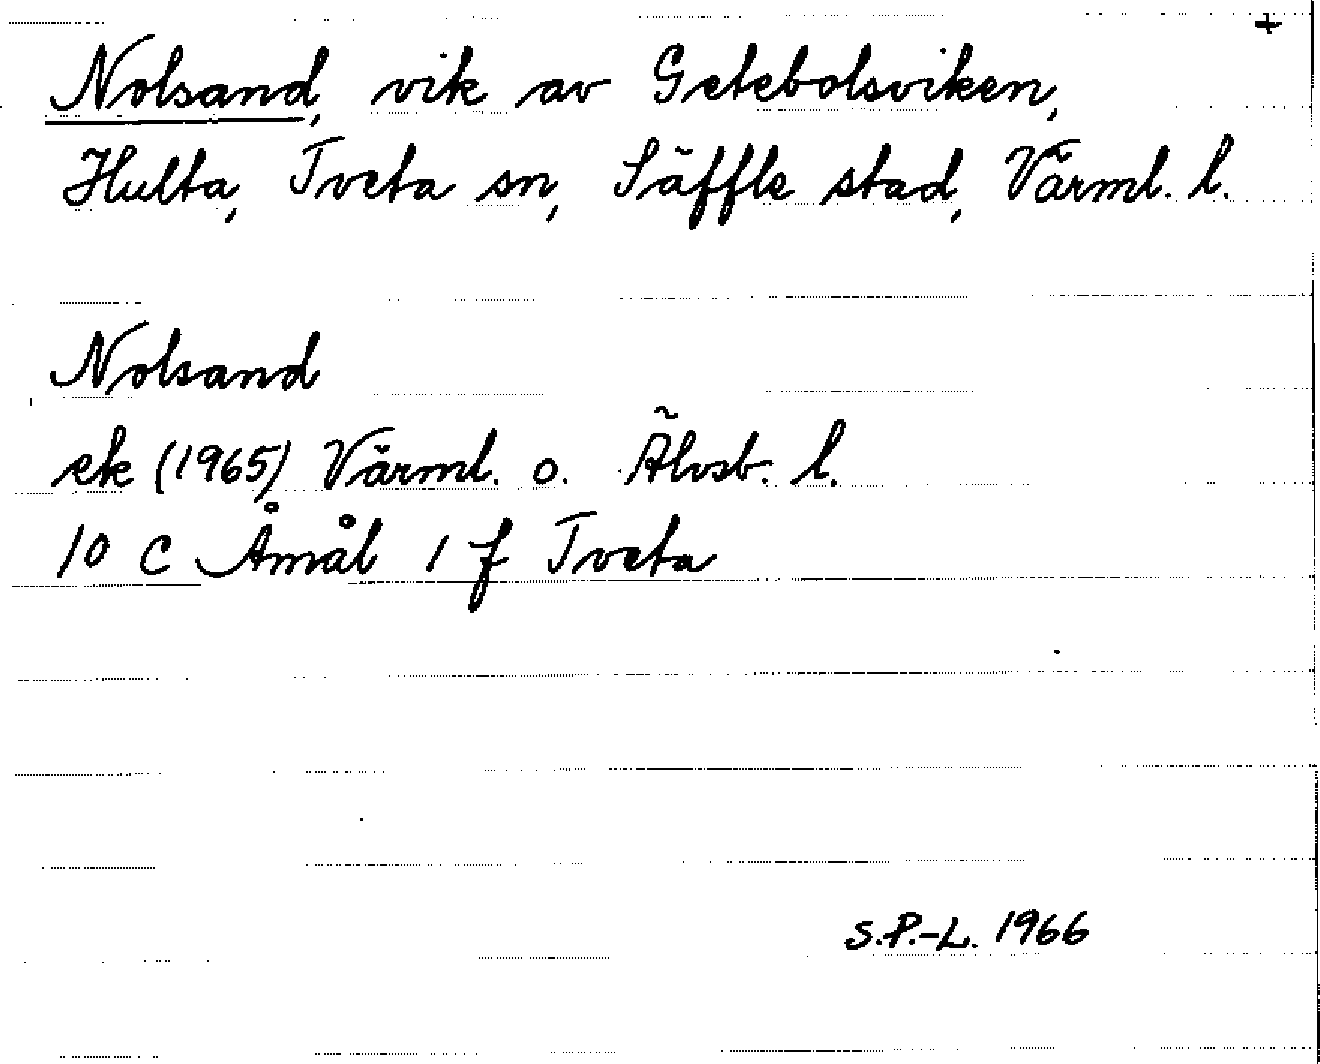 +
Nolsand, vik av Getebolsviken,
Hulta, Tveta sn, Säffle stad, Värml. l.
Nolsand
ek (1965) Värml. o. Älvsb. l.
10 C Åmål 1 f Tveta
S.P.-L. 1966